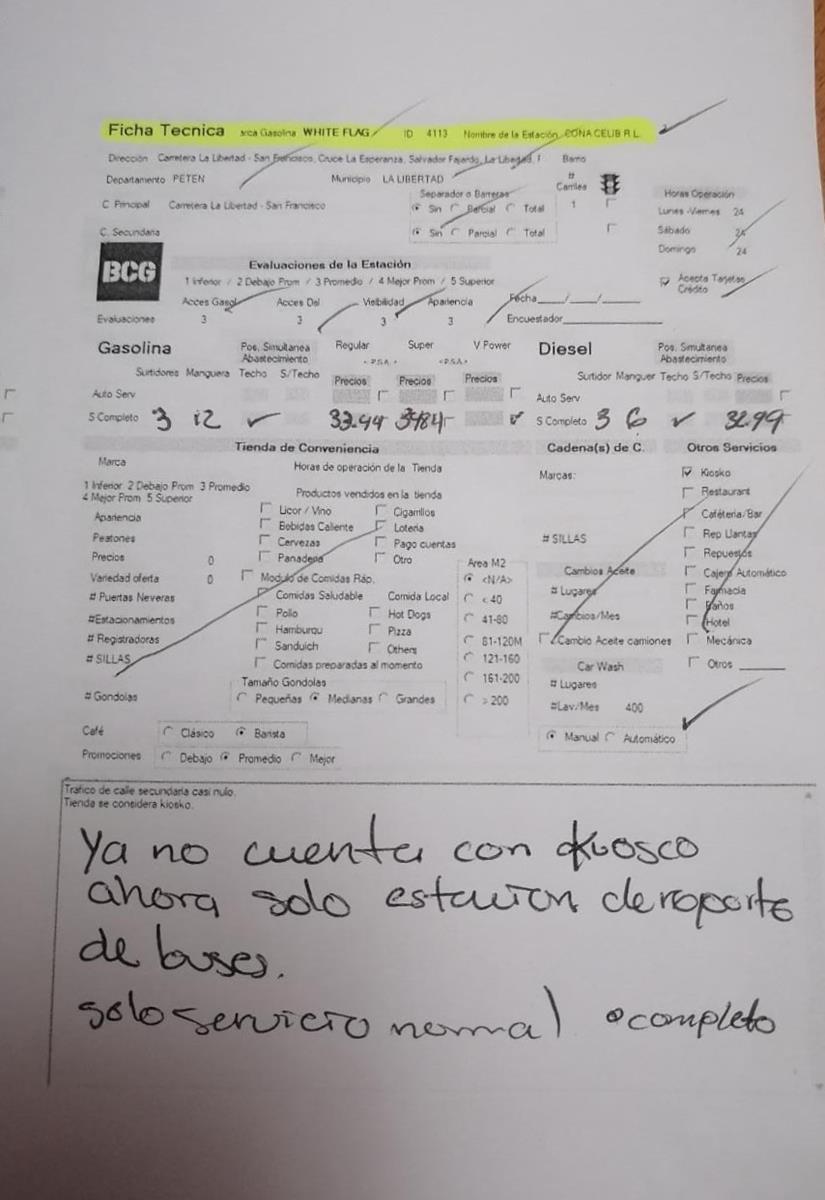 Ficha Tecnica arca Gasolina WHITE FLAG ID 4113 Nombre de la Estación CONACELIB R.L.
Dirección Carretera La Libertad - San Francisco, Cruce La Esperanza, Salvador Fajardo, La Libertad, Barrio
Departamento PETEN Municipio LA LIBERTAD # Carriles
Separador o Barreras Horas Operación
C Principal Carretera La Libertad - San Francisco Sin Parcial Total 1 Lunes -Viernes 24
C. Secundaria Sin Parcial Total Sábado 24
Domingo 24
BCG Evaluaciones de la Estación
1 Inferior / 2 Debajo Prom / 3 Promedio / 4 Mejor Prom / 5 Superior Acepta Tarjetas Crédito
Acces Gasol Acces Del Visibilidad Apariencia Fecha___/___/___
Evaluaciones 3 3 3 3 Encuestador
Gasolina Pos. Simultanea Abastecimiento Regular Super V Power Diesel Pos. Simultanea Abastecimiento
Surtidores Manguera Techo S/Techo Precios Precios Precios Surtidor Manguer Techo S/Techo Precios
Auto Serv Auto Serv
S Completo 3 12 ✓ 33.94 S Completo 3 6 ✓ 32.99
Tienda de Conveniencia Cadena(s) de C. Otros Servicios
Marca Horas de operación de la Tienda Marcas: Kiosko
1 Inferior 2 Debajo Prom 3 Promedio
4 Mejor Prom 5 Superior Productos vendidos en la tienda Restaurant
Apariencia Licor / Vino Cigarrillos Cafetería/Bar
Peatones Bebidas Caliente Loteria # SILLAS Rep Llantas
Precios 0 Cervezas Pago cuentas Repuestos
Panaderia Otro Area M2
Variedad oferta 0 Modulo de Comidas Ráp. <N/A> Cambios Aceite Cajero Automático
# Puertas Neveras Comidas Saludable Comida Local < 40 # Lugares Farmacia
#Estacionamientos Pollo Hot Dogs 41-80 #Cambios/Mes Baños
# Registradoras Hamburgu Pizza 81-120M Cambio Aceite camiones Hotel
# SILLAS Sanduich Others 121-160 Car Wash Mecánica
Comidas preparadas al momento 161-200 # Lugares Otros
Tamaño Gondolas
# Gondolas Pequeñas Medianas Grandes > 200 #Lav./Mes 400
Café Clásico Barista Manual Automático
Promociones Debajo Promedio Mejor
Trafico de calle secundaria casi nulo.
Tienda se considera kiosko.
Ya no cuenta con kiosco
ahora solo estacion de
de buses.
solo servicio normal o completo